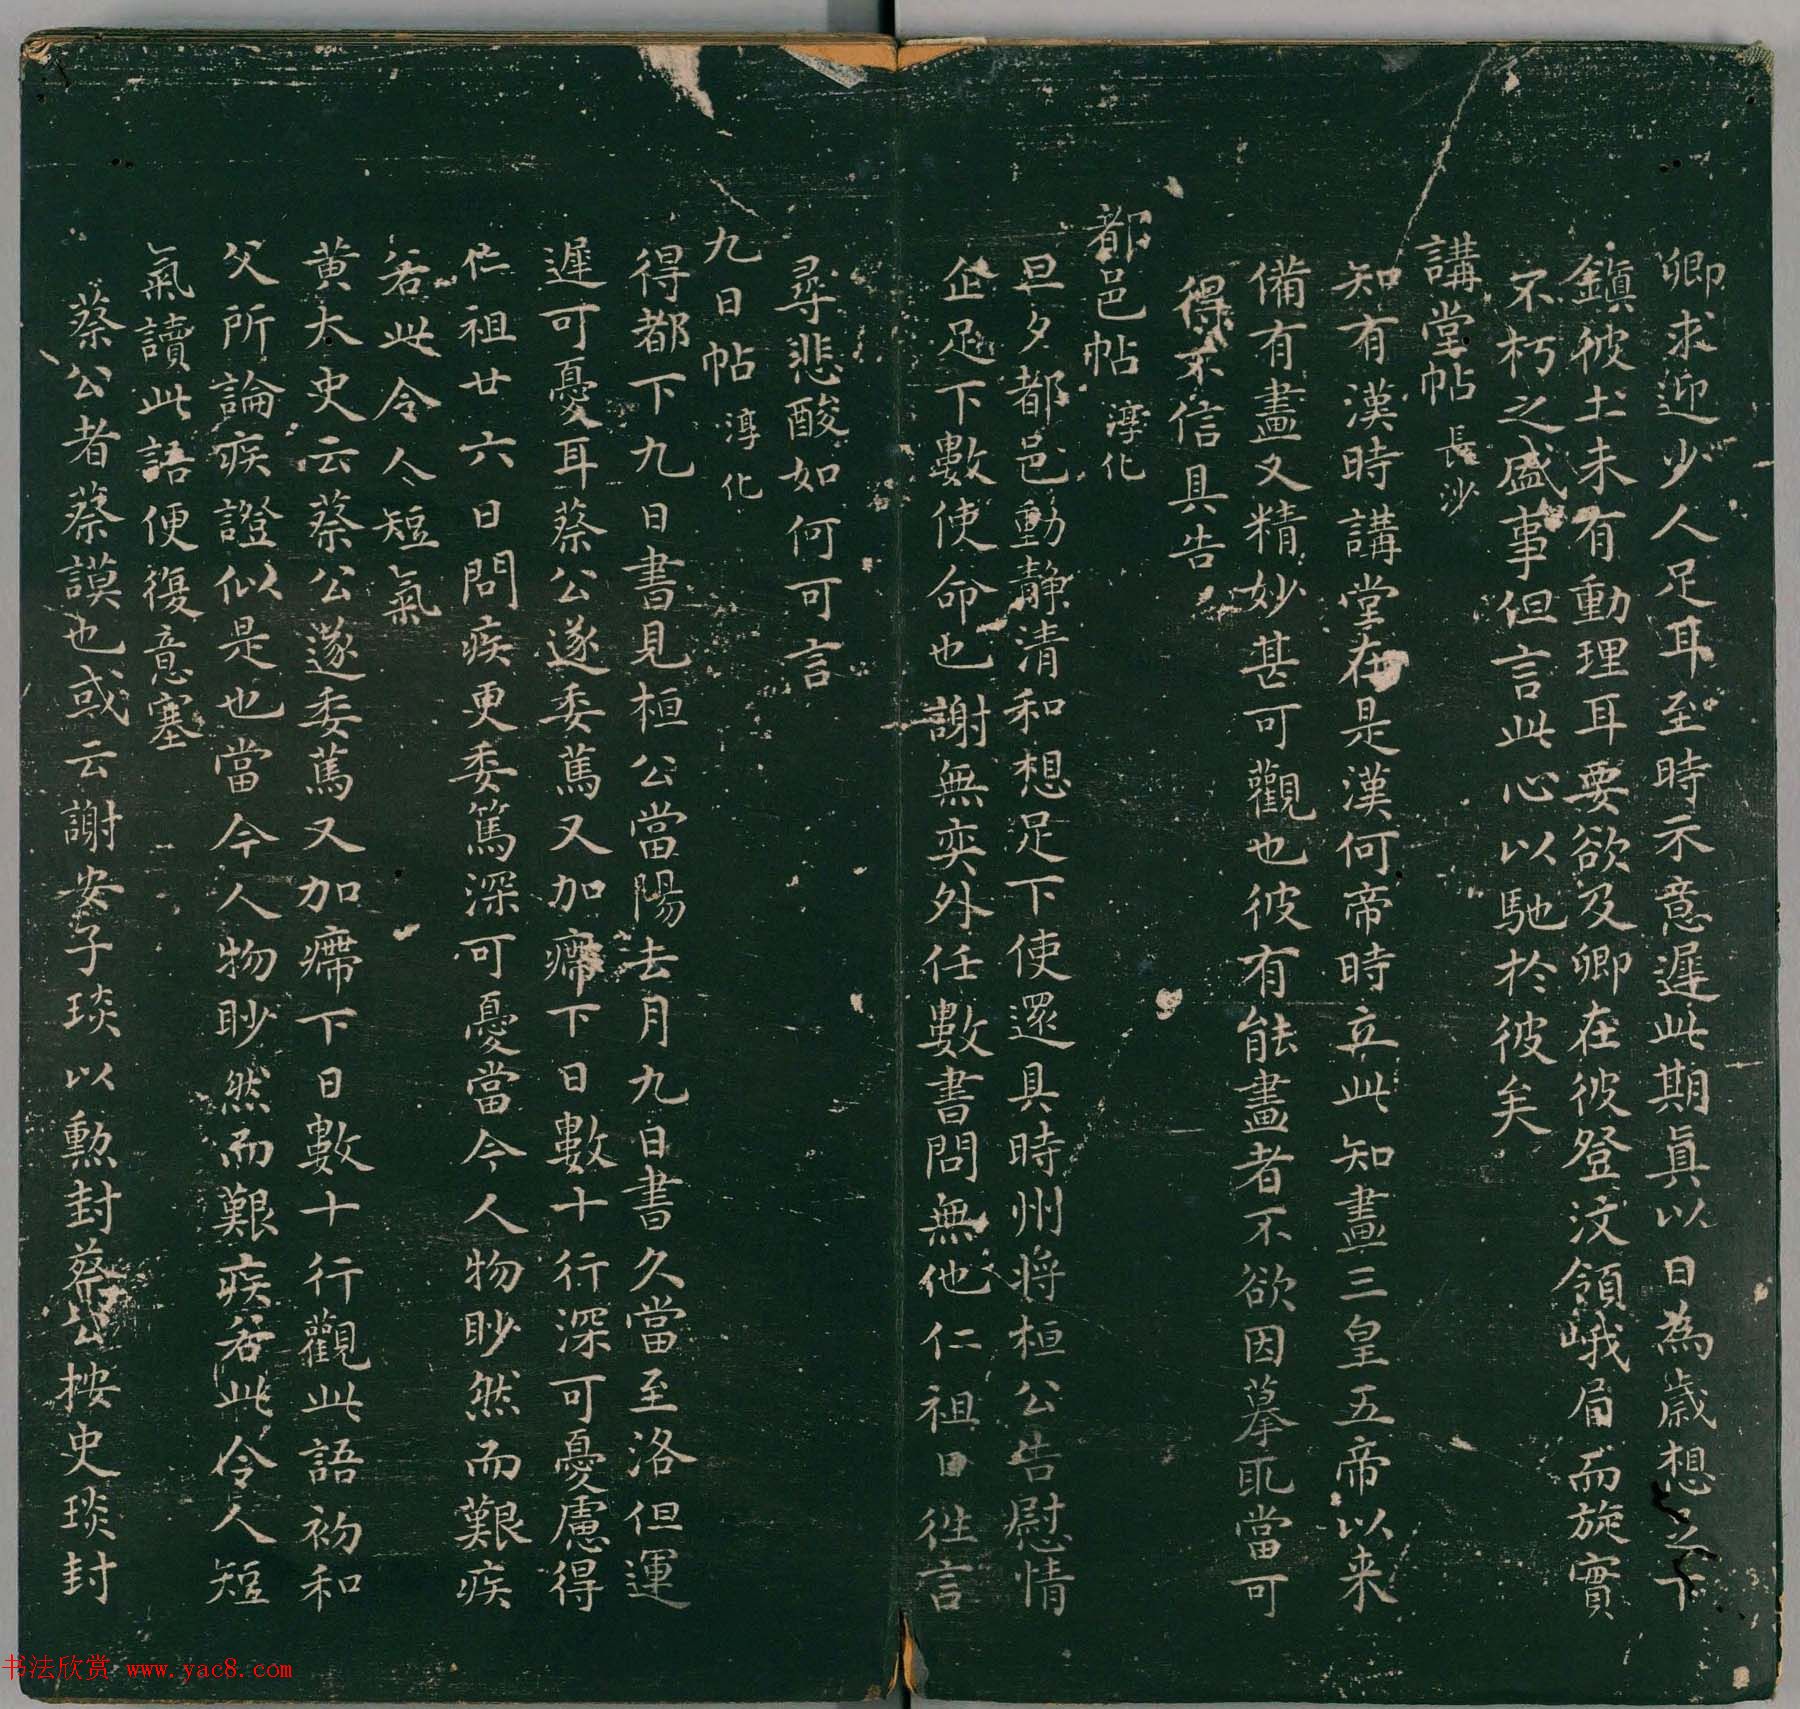 卿求迎少人足耳至時示意遲此期真以日為歲想足下
鎮彼土未有動理耳要欲及卿在彼登汶領峨眉而旋實
不朽之盛事但言此心以馳於彼矣
講堂帖 長沙
知有漢時講堂在是漢何帝時立此知畫三皇五帝以来
備有畫又精妙甚可觀也彼有能畫者不欲因摹取當可
得不信具告
都邑帖 淳化
旦夕都邑動靜清和想足下使還具時州將桓公告慰情
企足下數使命也謝無奕外任數書問無他仁祖日徃言
尋悲酸如何可言
九日帖 淳化
得都下九日書見桓公當陽去月九日書久當至洛但運
遲可憂耳蔡公遂委篤又加㿃下日數十行深可憂慮得
仁祖廿六日問疾更委篤深可憂當今人物眇然而艱疾
若此令人短氣
黃太史云蔡公遂委篤又加㿃下日數十行觀此語初和
父所論疾證似是也當今人物眇然而艱疾若此令人短
氣讀此語便復意塞
蔡公者蔡謨也或云謝安子琰以勲封蔡公按史琰封
书法欣赏 www.yac8.com